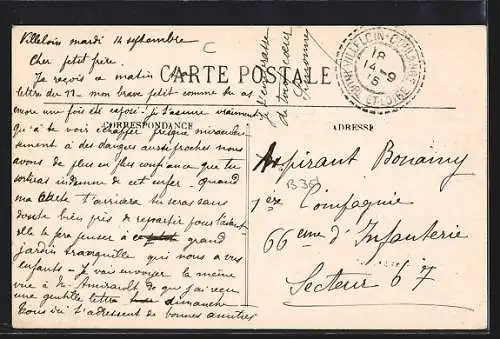 Villeloin mardi 14 septembre
Cher petit frère.
Je reçois ce matin ta
lettre du 11 - mon brave petit comme tu as
encore une fois été exposé ! je t'assure vraiment
qu'à te voir échapper presque miraculeu-
sement à des dangers aussi proches nous
avons de plus en plus confiance que tu
sortiras indemne de cet enfer. Quand
ma carte t'arrivera tu seras sans
doute bien près de repartir pour l'assaut
elle te fera penser à ce grand
jardin tranquille qui nous a vus
enfants - Je vais envoyer la même
vue à de que j'ai reçu
une gentille lettre dimanche
Tous ici t'adressent de bonnes amitiés
Je t'embrasse
de tout cœur
C
CARTE POSTALE
CORRESPONDANCE
ADRESSE
VILLELOIN-COULANGÉ
18
14-9
15
INDRE-ET-LOIRE
Aspirant Bonamy
B361
1ère Compagnie
66eme d'Infanterie
Secteur 67